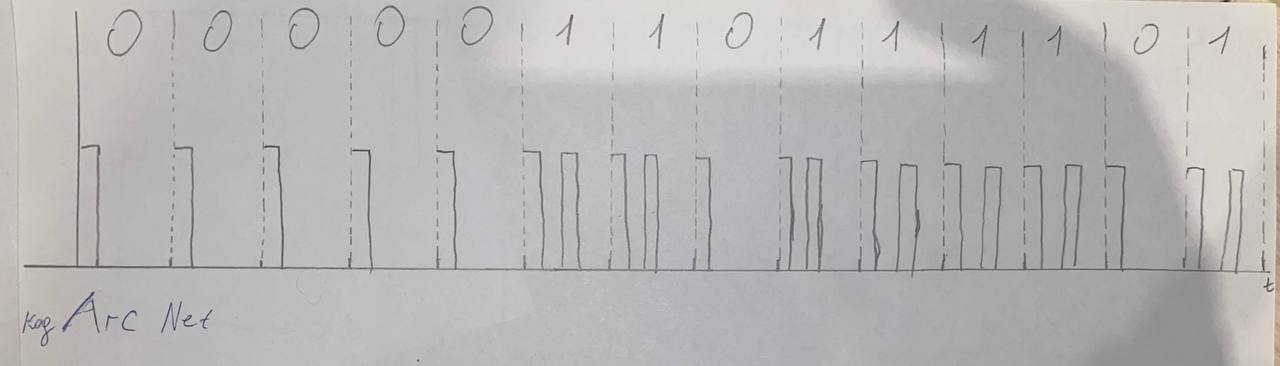 0 0 0 0 0 1 1 0 1 1 1 1 0 1
t
код Arc Net